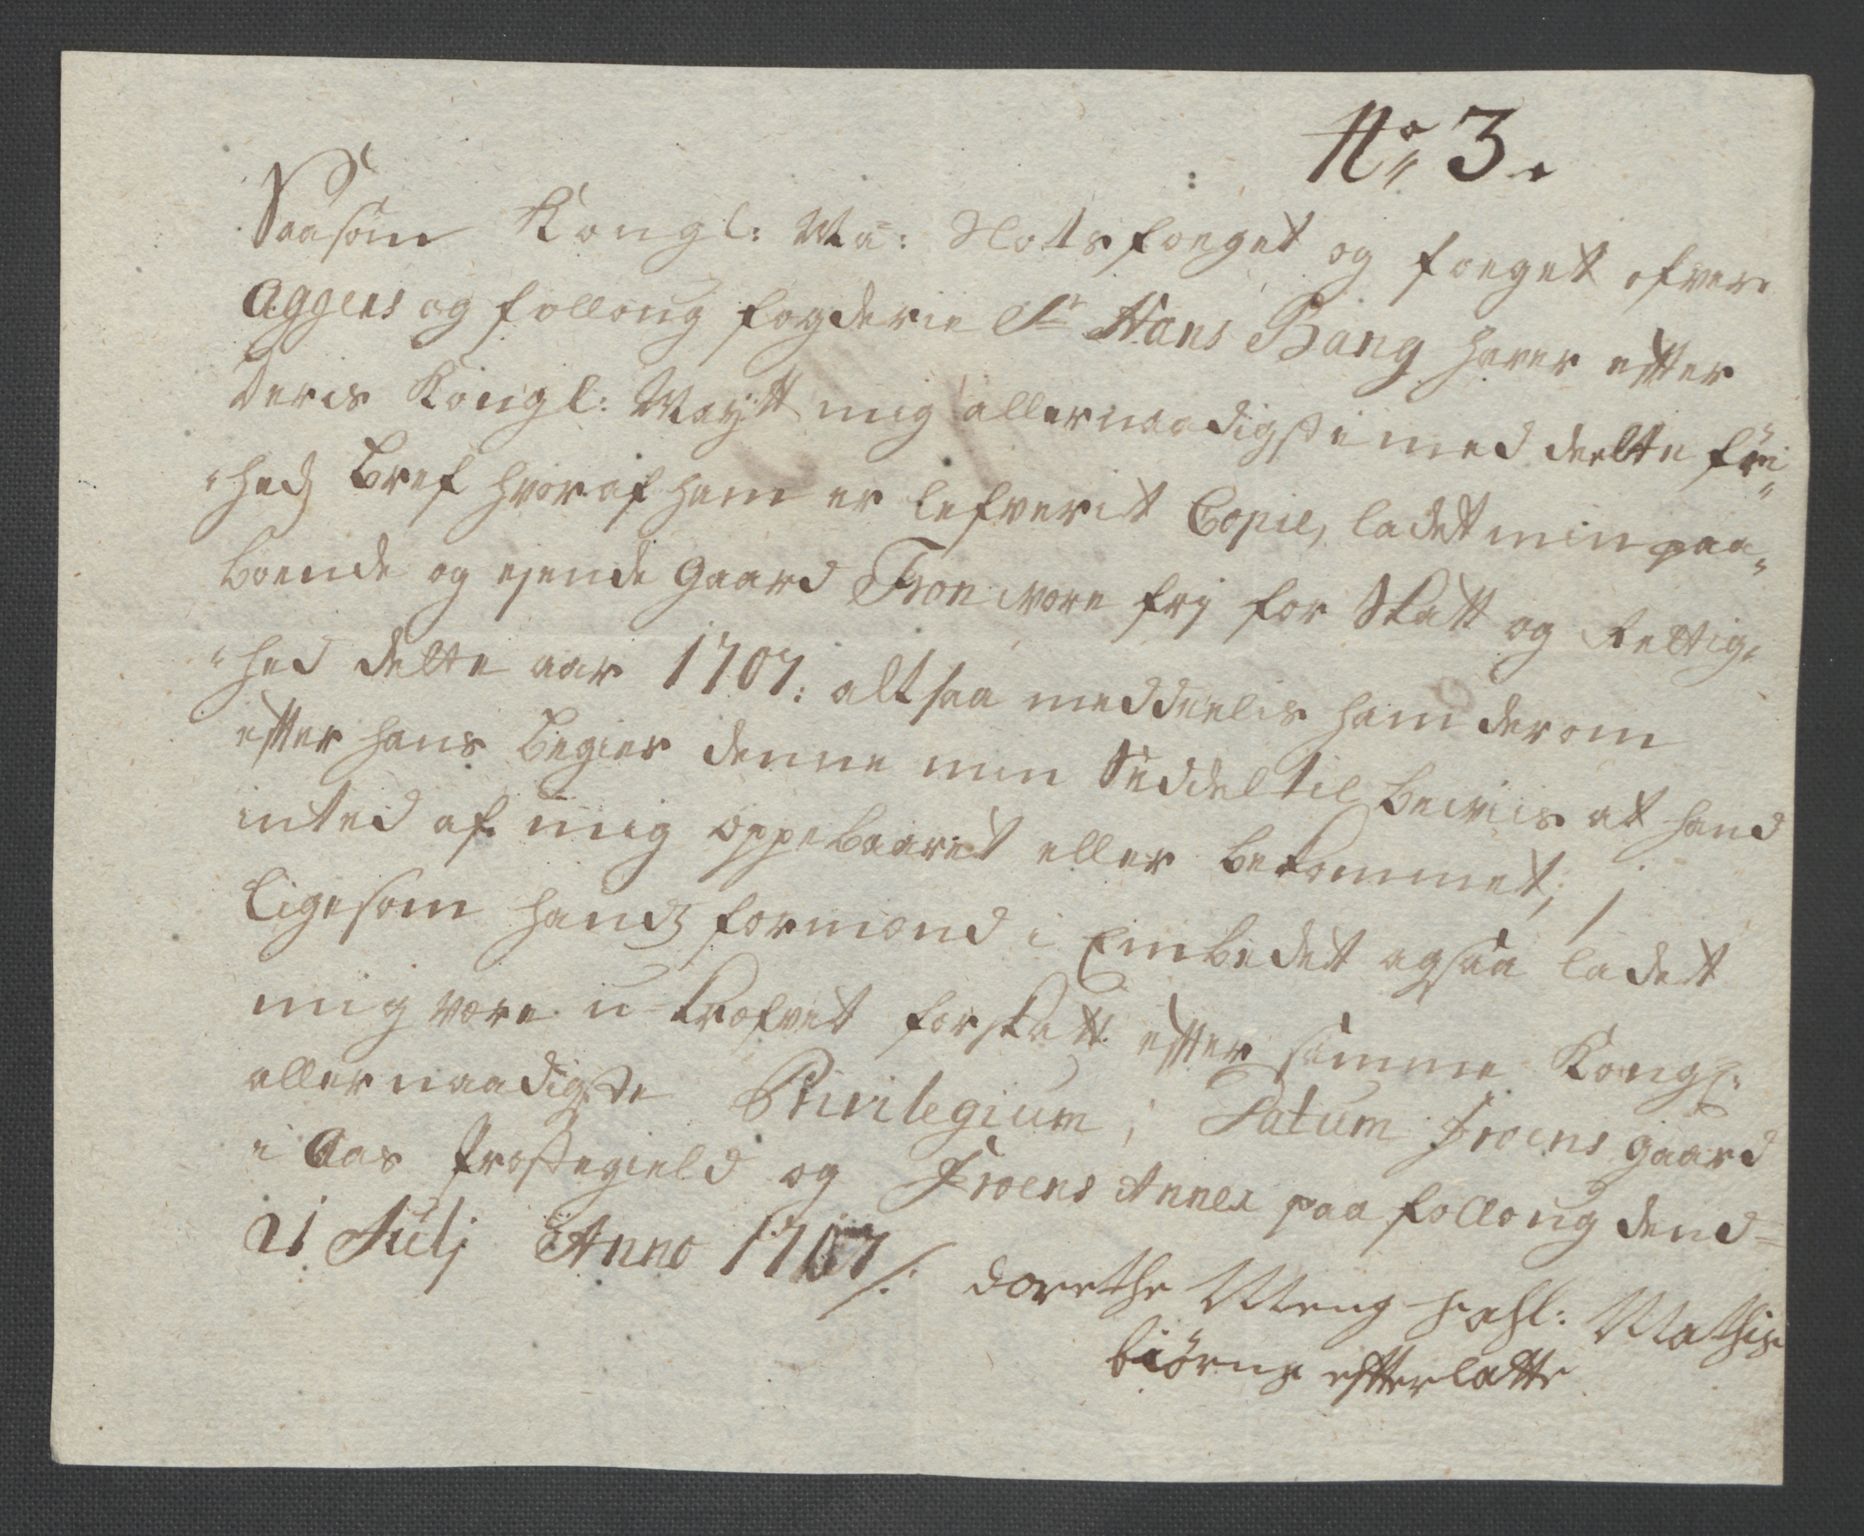 No 3.
Saasom Kongl: Ma: Slotsfoeget og foeget ofver
Aggers og folloug fogderie Sr Hans Bang haver efter
deris Kongl: Maytt mig allernaadigst i med deelte frj
hedz Bref hvoraf ham er lefverit Copie, ladet min paa
boende og ejende Gaard Fron være frj for Skatt og Rettig
hed dette aar 1707: altsaa meddeelis ham derom
efter hans Begier denne min Seddel til Beviis at hand
inted af mig oppebaaret eller bekommet,
ligesom handz formænd i Embedet ogsaa ladet
mig være u-krafvet for skatt efter samme Kongl:
allernaadigste Privilegium, Datum Froens gaard
i Aas Prostegield og Froens Annex paa follong dend
21 Julj Anno 1707 /:
dorethe Meng Sahl: Mathis
biørns efterlatte